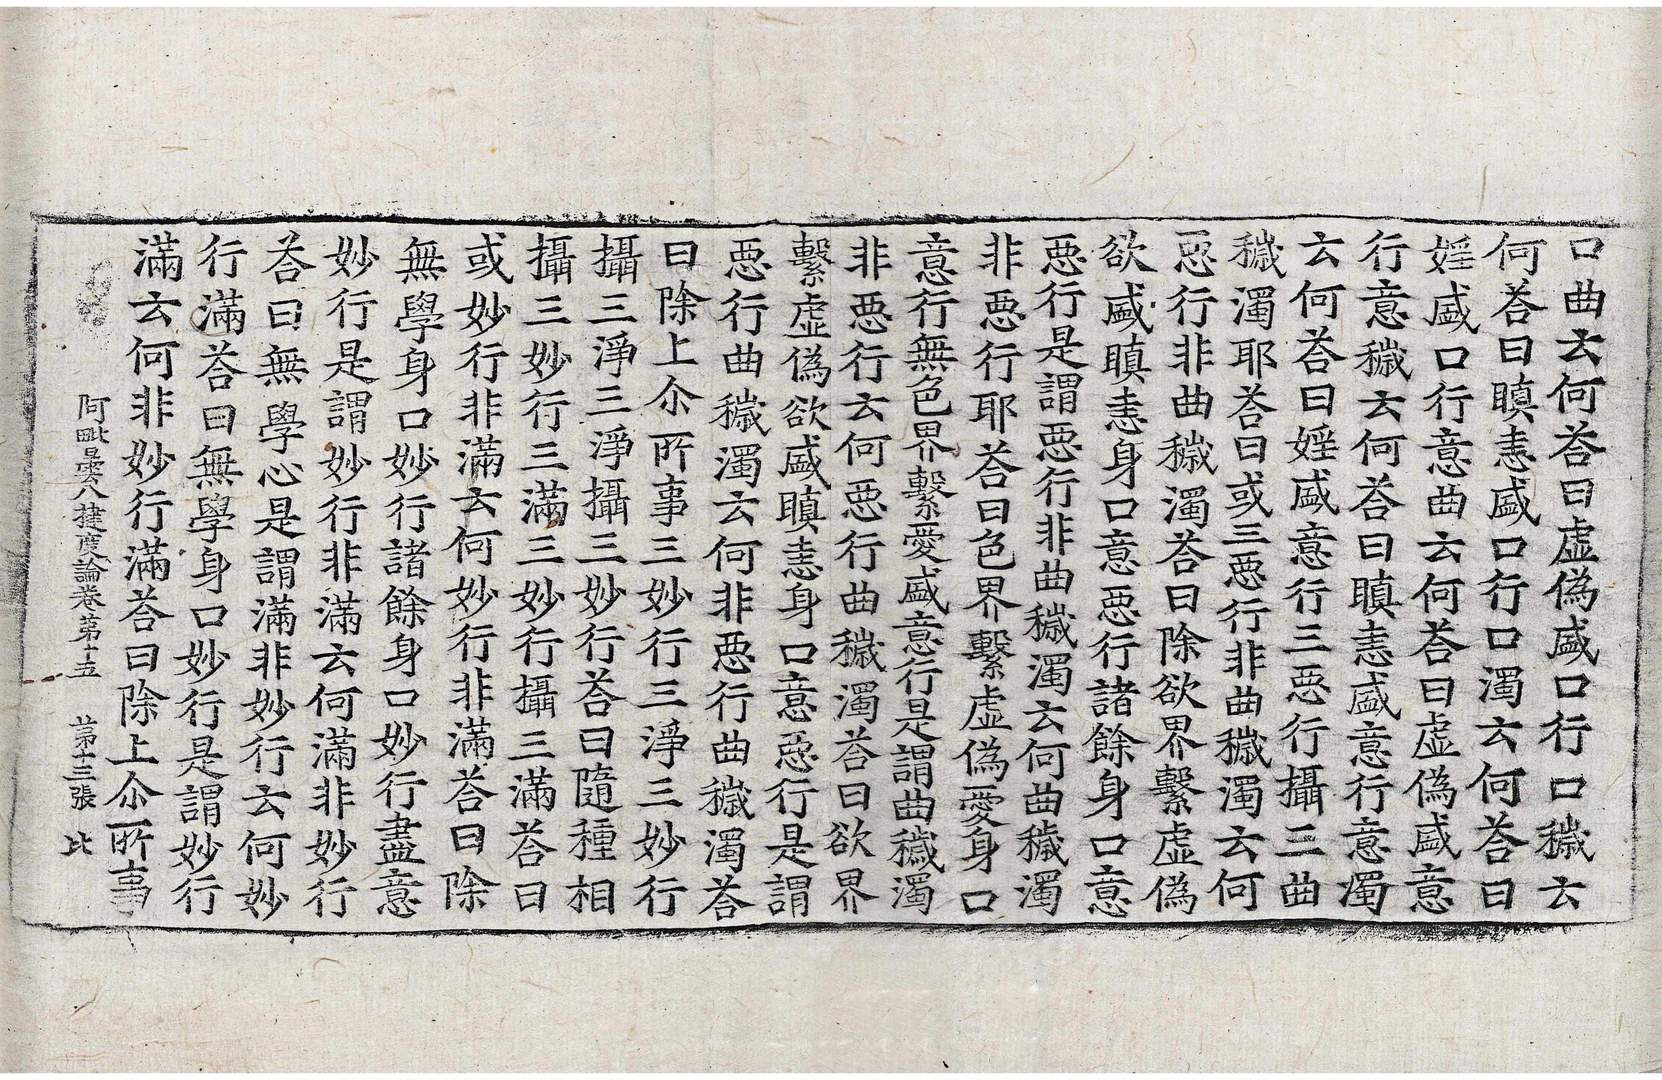 口曲云何荅曰虛偽盛口行口穢云
何荅曰瞋恚盛口行口濁云何荅曰
婬盛口行意曲云何荅曰虛偽盛意
行意穢云何荅曰瞋恚盛意行意濁
云何荅曰婬盛意行三惡行攝三曲
穢濁耶荅曰或三惡行非曲穢濁云何
惡行非曲穢濁荅曰除欲界繫虛偽
欲盛瞋恚身口意惡行諸餘身口意
惡行是謂惡行非曲穢濁云何曲穢濁
非惡行耶荅曰色界繫虛偽愛身口
意行無色界繫愛盛意行是謂曲穢濁
非惡行云何惡行曲穢濁荅曰欲界
繫虛偽欲盛瞋恚身口意惡行是謂
惡行曲穢濁云何非惡行曲穢濁荅
曰除上尒所事三妙行三淨三妙行
攝三淨三淨攝三妙行荅曰隨種相
攝三妙行三滿三妙行攝三滿荅曰
或妙行非滿云何妙行非滿荅曰除
無學身口妙行諸餘身口妙行盡意
妙行是謂妙行非滿云何滿非妙行
荅曰無學心是謂滿非妙行云何妙
行滿荅曰無學身口妙行是謂妙行
滿云何非妙行滿荅曰除上尒所事
阿毗曇八揵度論卷第十五 第十三張 比